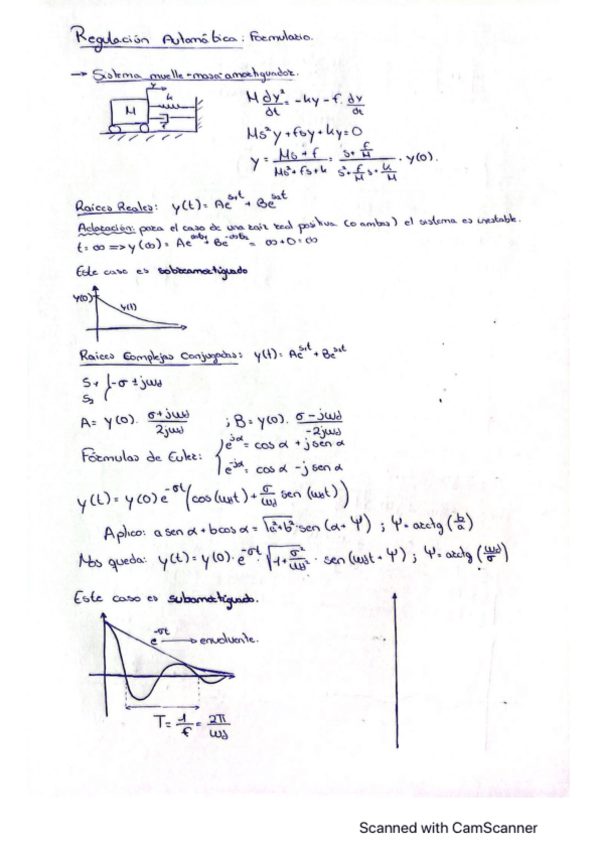 Regulación Automática: Formulario.
→ Sistema muelle-masa-amortiguador.
y
k
M
f
M dy²/dt = -ky - f · dv/dt
Ms²y + fsy + ky = 0
y = (Ms + f)/(Ms² + fs + k) = (s + f/M)/(s² + f/M s + k/M) · y(0).
Raices Reales: y(t) = Ae^{s₁t} + Be^{s₂t}
Aclaración: para el caso de una raiz real positiva (o ambas) el sistema es inestable.
t = ∞ => y(∞) = = ∞ + 0 = ∞
Este caso es sobreamortiguado
y(0)
y(t)
Raices Complejas Conjugadas: y(t) = Ae^{s₁t} + Be^{s₂t}
S₁
S₂ } -σ ± jωd
A = y(0) · (σ + jωd)/(2jωd) ; B = y(0) · (σ - jωd)/(-2jωd)
Fórmulas de Euler: { e^{jα} = cos α + j sen α
e^{-jα} = cos α - j sen α
y(t) = y(0) e^{-σt} (cos(ωdt) + σ/ωd sen(ωdt))
Aplico: a sen α + b cos α = √(a² + b²) · sen(α + Ψ) ; Ψ = arctg(b/a)
Nos queda: y(t) = y(0) · e^{-σt} · √(1 + σ²/ωd²) · sen(ωdt + Ψ) ; Ψ = arctg(ωd/σ)
Este caso es subamortiguado.
e^{-σt} → envolvente.
T = 1/f = 2π/ωd
Scanned with CamScanner